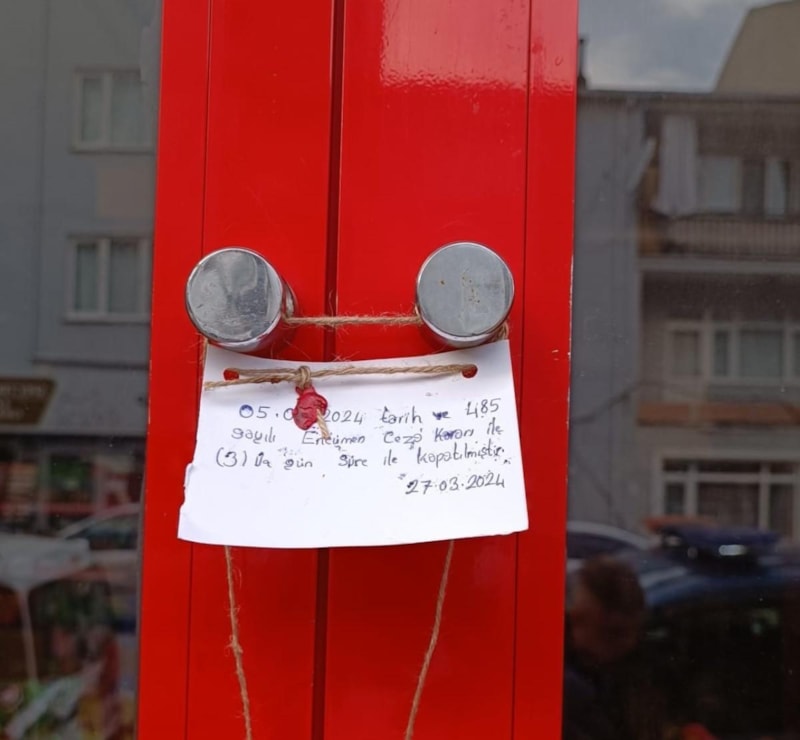 05.0 2024 tarih ve 485
sayılı Encümen Ceza Kararı ile
(3) Üç gün süre ile kapatılmıştır.
27.03.2024